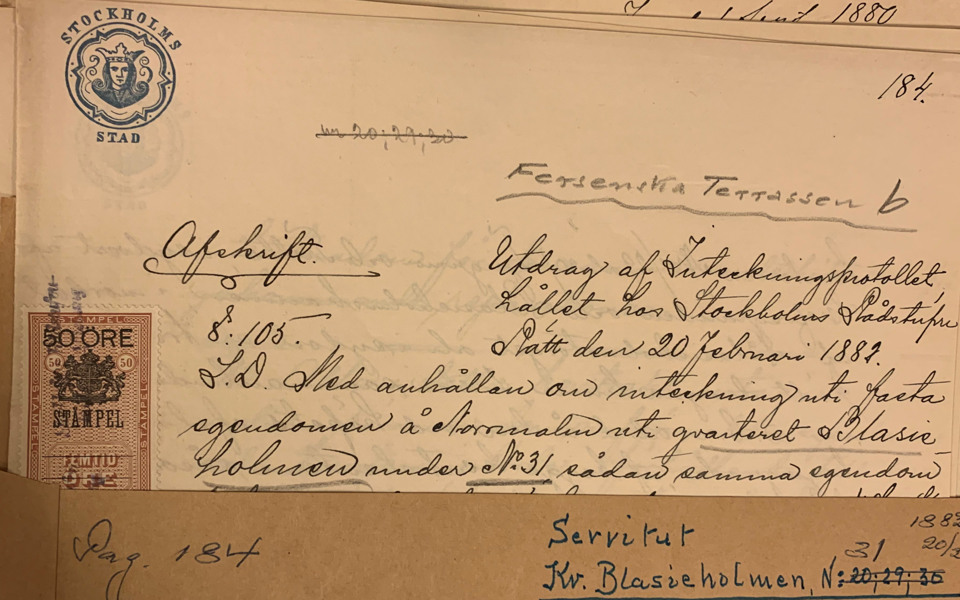 1880
STOCKHOLMS
STAD
184.
nr 20; 29; 30
Fersenska Terrassen b
Afskrift.
Utdrag af Inteckningsprotokollet,
hållet hos Stockholms Rådstufvu
Rätt den 20 Februari 1882.
§: 105.
S.D. Med anhållan om inteckning uti fasta
egendomen å Norrmalm uti qvarteret Blasie
holmen under No 31 sådan samma egendom
STÄMPEL
50 ÖRE
50 50
STÄMPEL
FEMTIO
Pag. 184
Servitut
1882
31 20/2
Kv. Blasieholmen, N: 20; 29; 30